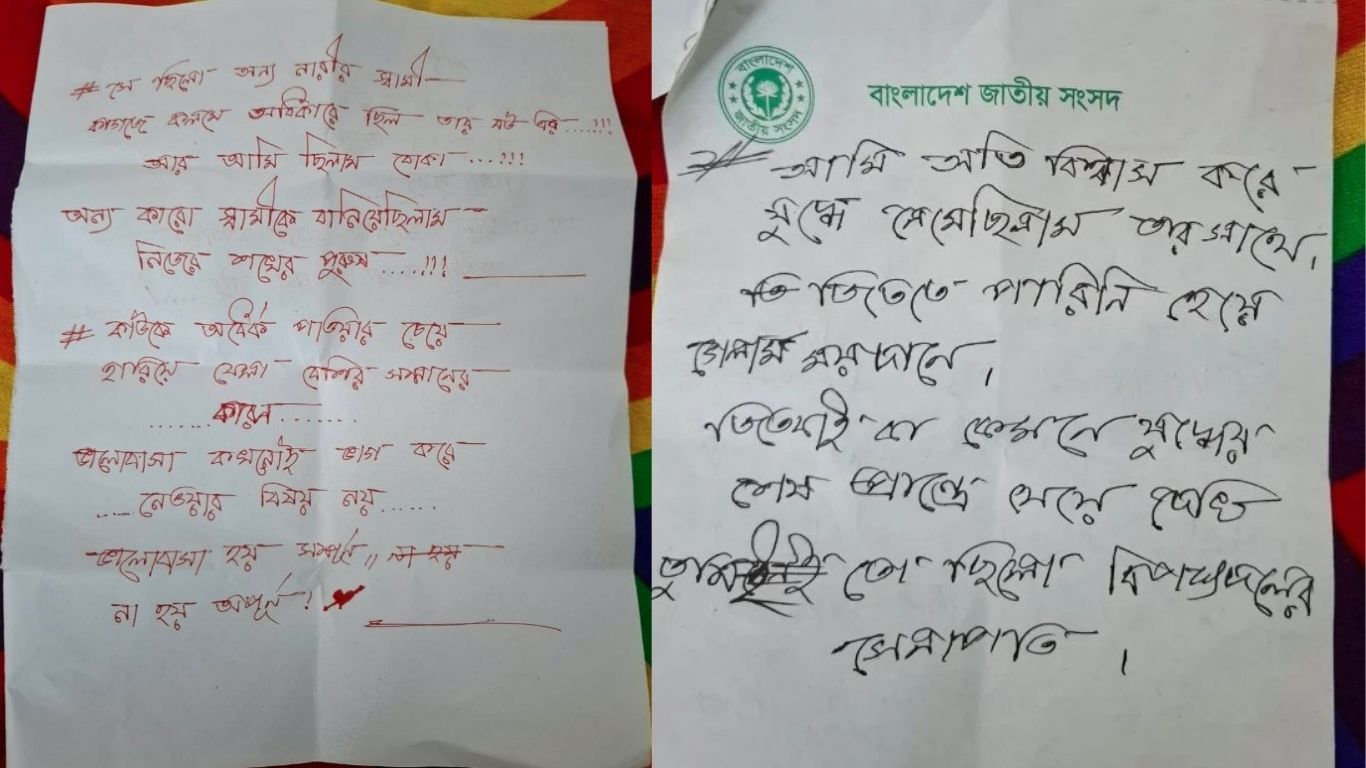 # সে ছিলো অন্য নারীর স্বামী—
কাগজে কলমে অধিকারে ছিল তার বউ এর....!!!
আর আমি ছিলাম বোকা....!!!
অন্য কারো স্বামীকে বানিয়েছিলাম—
নিজের শখের পুরুষ....!!!
# কাউকে অর্ধেক পাওয়ার চেয়ে—
হারিয়ে ফেলা বেশির সম্মানের—
...... কারন ........
ভালোবাসা কখনোই ভাগ করে
.....নেওয়ার বিষয় নয়......
ভালোবাসা হয় সম্পূর্ন,, না হয়—
না হয় অপূর্ন! ❤
বাংলাদেশ
জাতীয় সংসদ
বাংলাদেশ জাতীয় সংসদ
# আমি অতি বিশ্বাস করে
যুদ্ধে নেমেছিলাম তার সাথে।
জিততে পারিনি হেরে
গেলাম ময়দানে।
জিতেযাই বা কেমনে যুদ্ধের
শেষ প্রান্তে যেয়ে দেখি
তুমিই তো ছিলো বিপক্ষদলের
সেনাপতি।